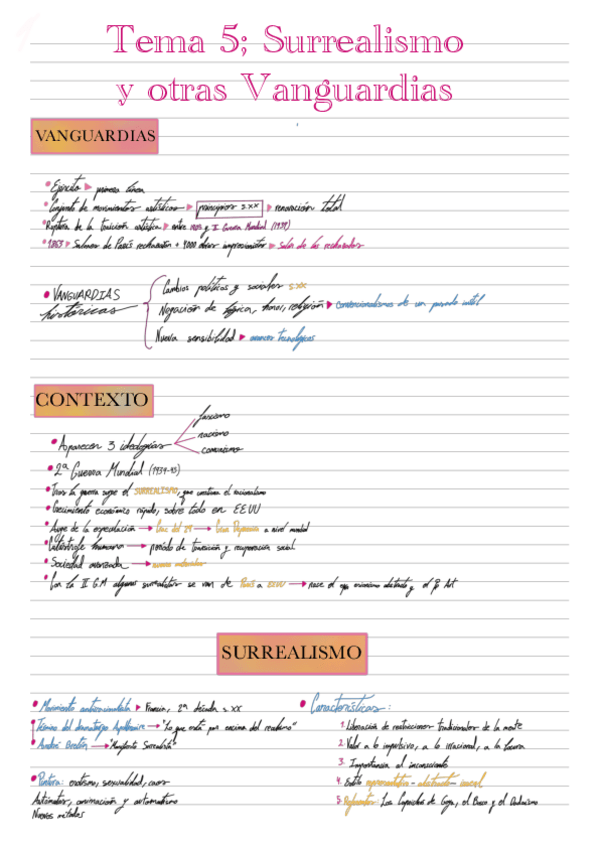 Tema 5; Surrealismo
y otras Vanguardias
VANGUARDIAS
• Ejército ▶ primera línea
• Conjunto de movimientos artísticos ▶ principios s.XX ▶ renovación total
• Ruptura de la tradición artística ▶ entre 1905 y II Guerra Mundial (1939)
• 1863 ▶ Salones de París rechazaron + 4000 obras impresionistas ▶ Salón de los rechazados
• VANGUARDIAS históricas
Cambios políticos y sociales s.XX
Negación de lógica, honor, religión ▶ convencionalismos de un pasado
Nueva sensibilidad ▶ avances tecnológicos
CONTEXTO
• Aparecen 3 ideologías
fascismo
nazismo
comunismo
• 2ª Guerra Mundial (1939-45)
• Tras la guerra surge el SURREALISMO, que cuestiona el racionalismo
• Crecimiento económico rápido, sobre todo en EEUU
• Auge de la especulación → Crac del 29 → Gran Depresión a nivel mundial
• Catástrofe humana → periodo de transición y recuperación social
• Sociedad avanzada → avances
• Con la II G.M algunos surrealistas se van de París a EEUU → nace el expresionismo abstracto y el Pop Art
SURREALISMO
• Movimiento antirracionalista ▶ Francia, 2ª década s.XX
• Término del dramaturgo Apollinaire → "Lo que está por encima del realismo"
• André Bretón → "Manifiesto Surrealista"
• Pintura: erotismo, sexualidad, caos
Autómatas, animación y automatismo
Nuevos métodos
• Características:
1. Liberación de restricciones tradicionales de la mente
2. Valor a lo impulsivo, a lo irracional, a la locura
3. Importancia al inconsciente
4. Estilo representativo - abstracto
5. Referentes: Los Caprichos de Goya, el Bosco y el Dadaísmo